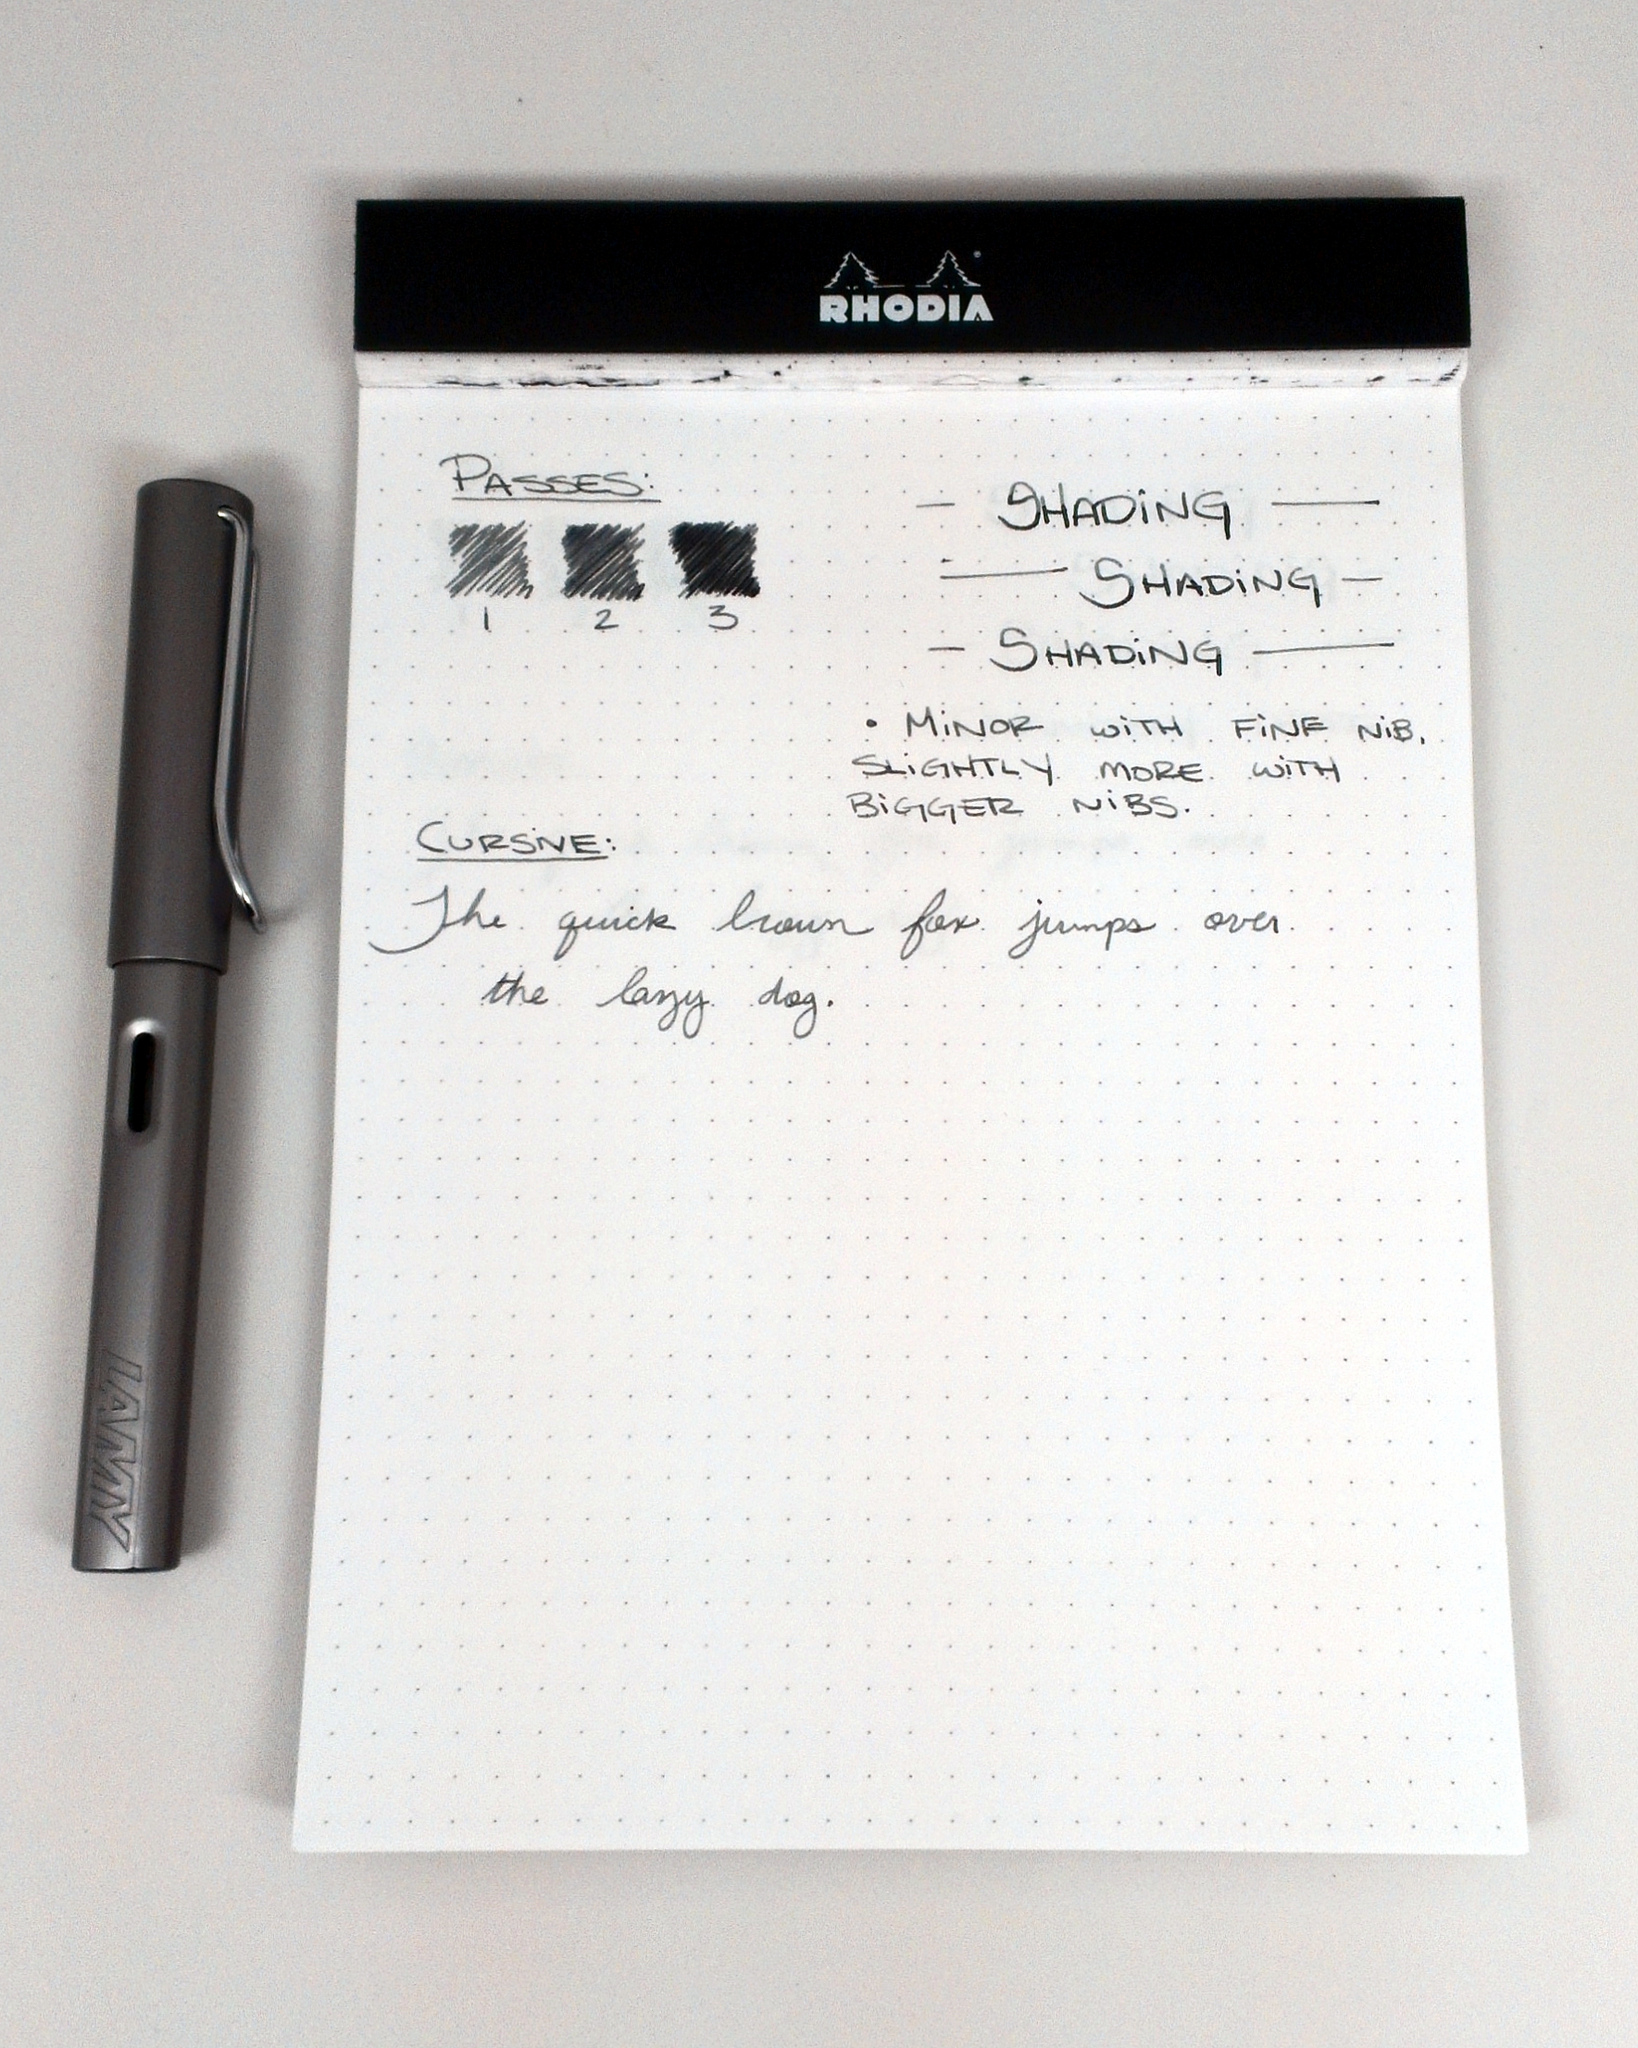 RHODIA
PASSES:
1 2 3
— SHADING —
— SHADING —
— SHADING —
• MINOR WITH FINE NIB.
SLIGHTLY MORE WITH
BIGGER NIBS.
CURSIVE:
The quick brown fox jumps over
the lazy dog.
LAMY